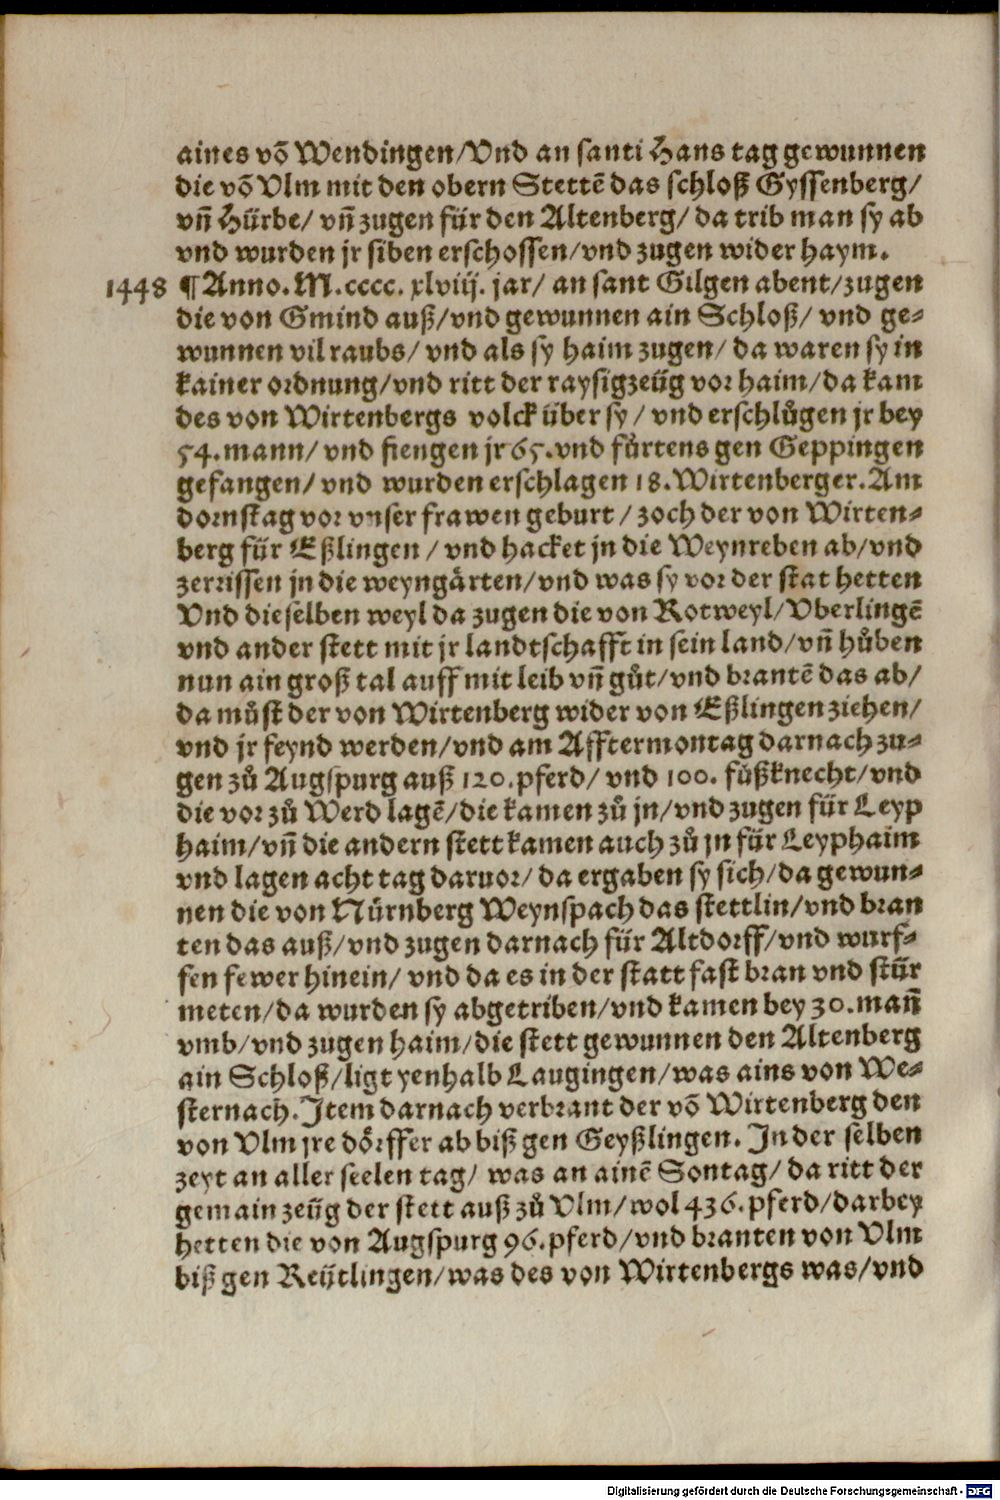 aines võ Wendingen/Vnd an santi Hans tag gewunnen
die võ Vlm mit den obern Stettẽ das schloß Gyssenberg/
vñ Hürbe/ vñ zugen für den Altenberg/ da trib man sy ab
vnd wurden jr siben erschossen/vnd zugen wider haym.
1448 ¶ Anno. M. cccc. xlviij. jar/ an sant Gilgen abent/zugen
die von Gmind auß/vnd gewunnen ain Schloß/ vnd ge⸗
wunnen vil raubs/ vnd als sy haim zugen/ da waren sy in
kainer ordnung/vnd ritt der raysigzeüg vor haim/da kam
des von Wirtenbergs volck über sy/ vnd erschlůgen jr bey
54. mann/ vnd fiengen jr 65. vnd fůrtens gen Geppingen
gefangen/ vnd wurden erschlagen 18. Wirtenberger. Am
dornstag vor vnser frawen geburt/ zoch der von Wirten⸗
berg für Eßlingen/ vnd hacket jn die Weynreben ab/vnd
zerrissen jn die weyngårten/vnd was sy vor der stat hetten
Vnd dieselben weyl da zugen die von Rotweyl/Vberlingẽ
vnd ander stett mit jr landtschafft in sein land/vñ hůben
nun ain groß tal auff mit leib vñ gůt/vnd brantẽ das ab/
da můst der von Wirtenberg wider von Eßlingen ziehen/
vnd jr feynd werden/vnd am Afftermontag darnach zu⸗
gen zů Augspurg auß 120. pferd/ vnd 100. fůßknecht/vnd
die vor zů Werd lagẽ/die kamen zů jn/vnd zugen für Leyp
haim/vñ die andern stett kamen auch zů jn für Leyphaim
vnd lagen acht tag daruor/da ergaben sy sich/da gewun⸗
nen die von Nürnberg Weynspach das stettlin/vnd bran
ten das auß/vnd zugen darnach für Altdorff/vnd wurf⸗
fen fewer hinein/ vnd da es in der statt fast bran vnd stür
meten/da wurden sy abgetriben/vnd kamen bey 30. mañ
vmb/vnd zugen haim/die stett gewunnen den Altenberg
ain Schloß/ligt yenhalb Laugingen/was ains von We⸗
sternach. Item darnach verbrant der võ Wirtenberg den
von Vlm jre dörffer ab biß gen Geyßlingen. In der selben
zeyt an aller seelen tag/ was an ainẽ Sontag/ da ritt der
gemain zeüg der stett auß zů Vlm/wol 436. pferd/darbey
hetten die von Augspurg 96. pferd/vnd branten von Vlm
biß gen Reütlingen/was des von Wirtenbergs was/vnd
Digitalisierung gefördert durch die Deutsche Forschungsgemeinschaft - DFG